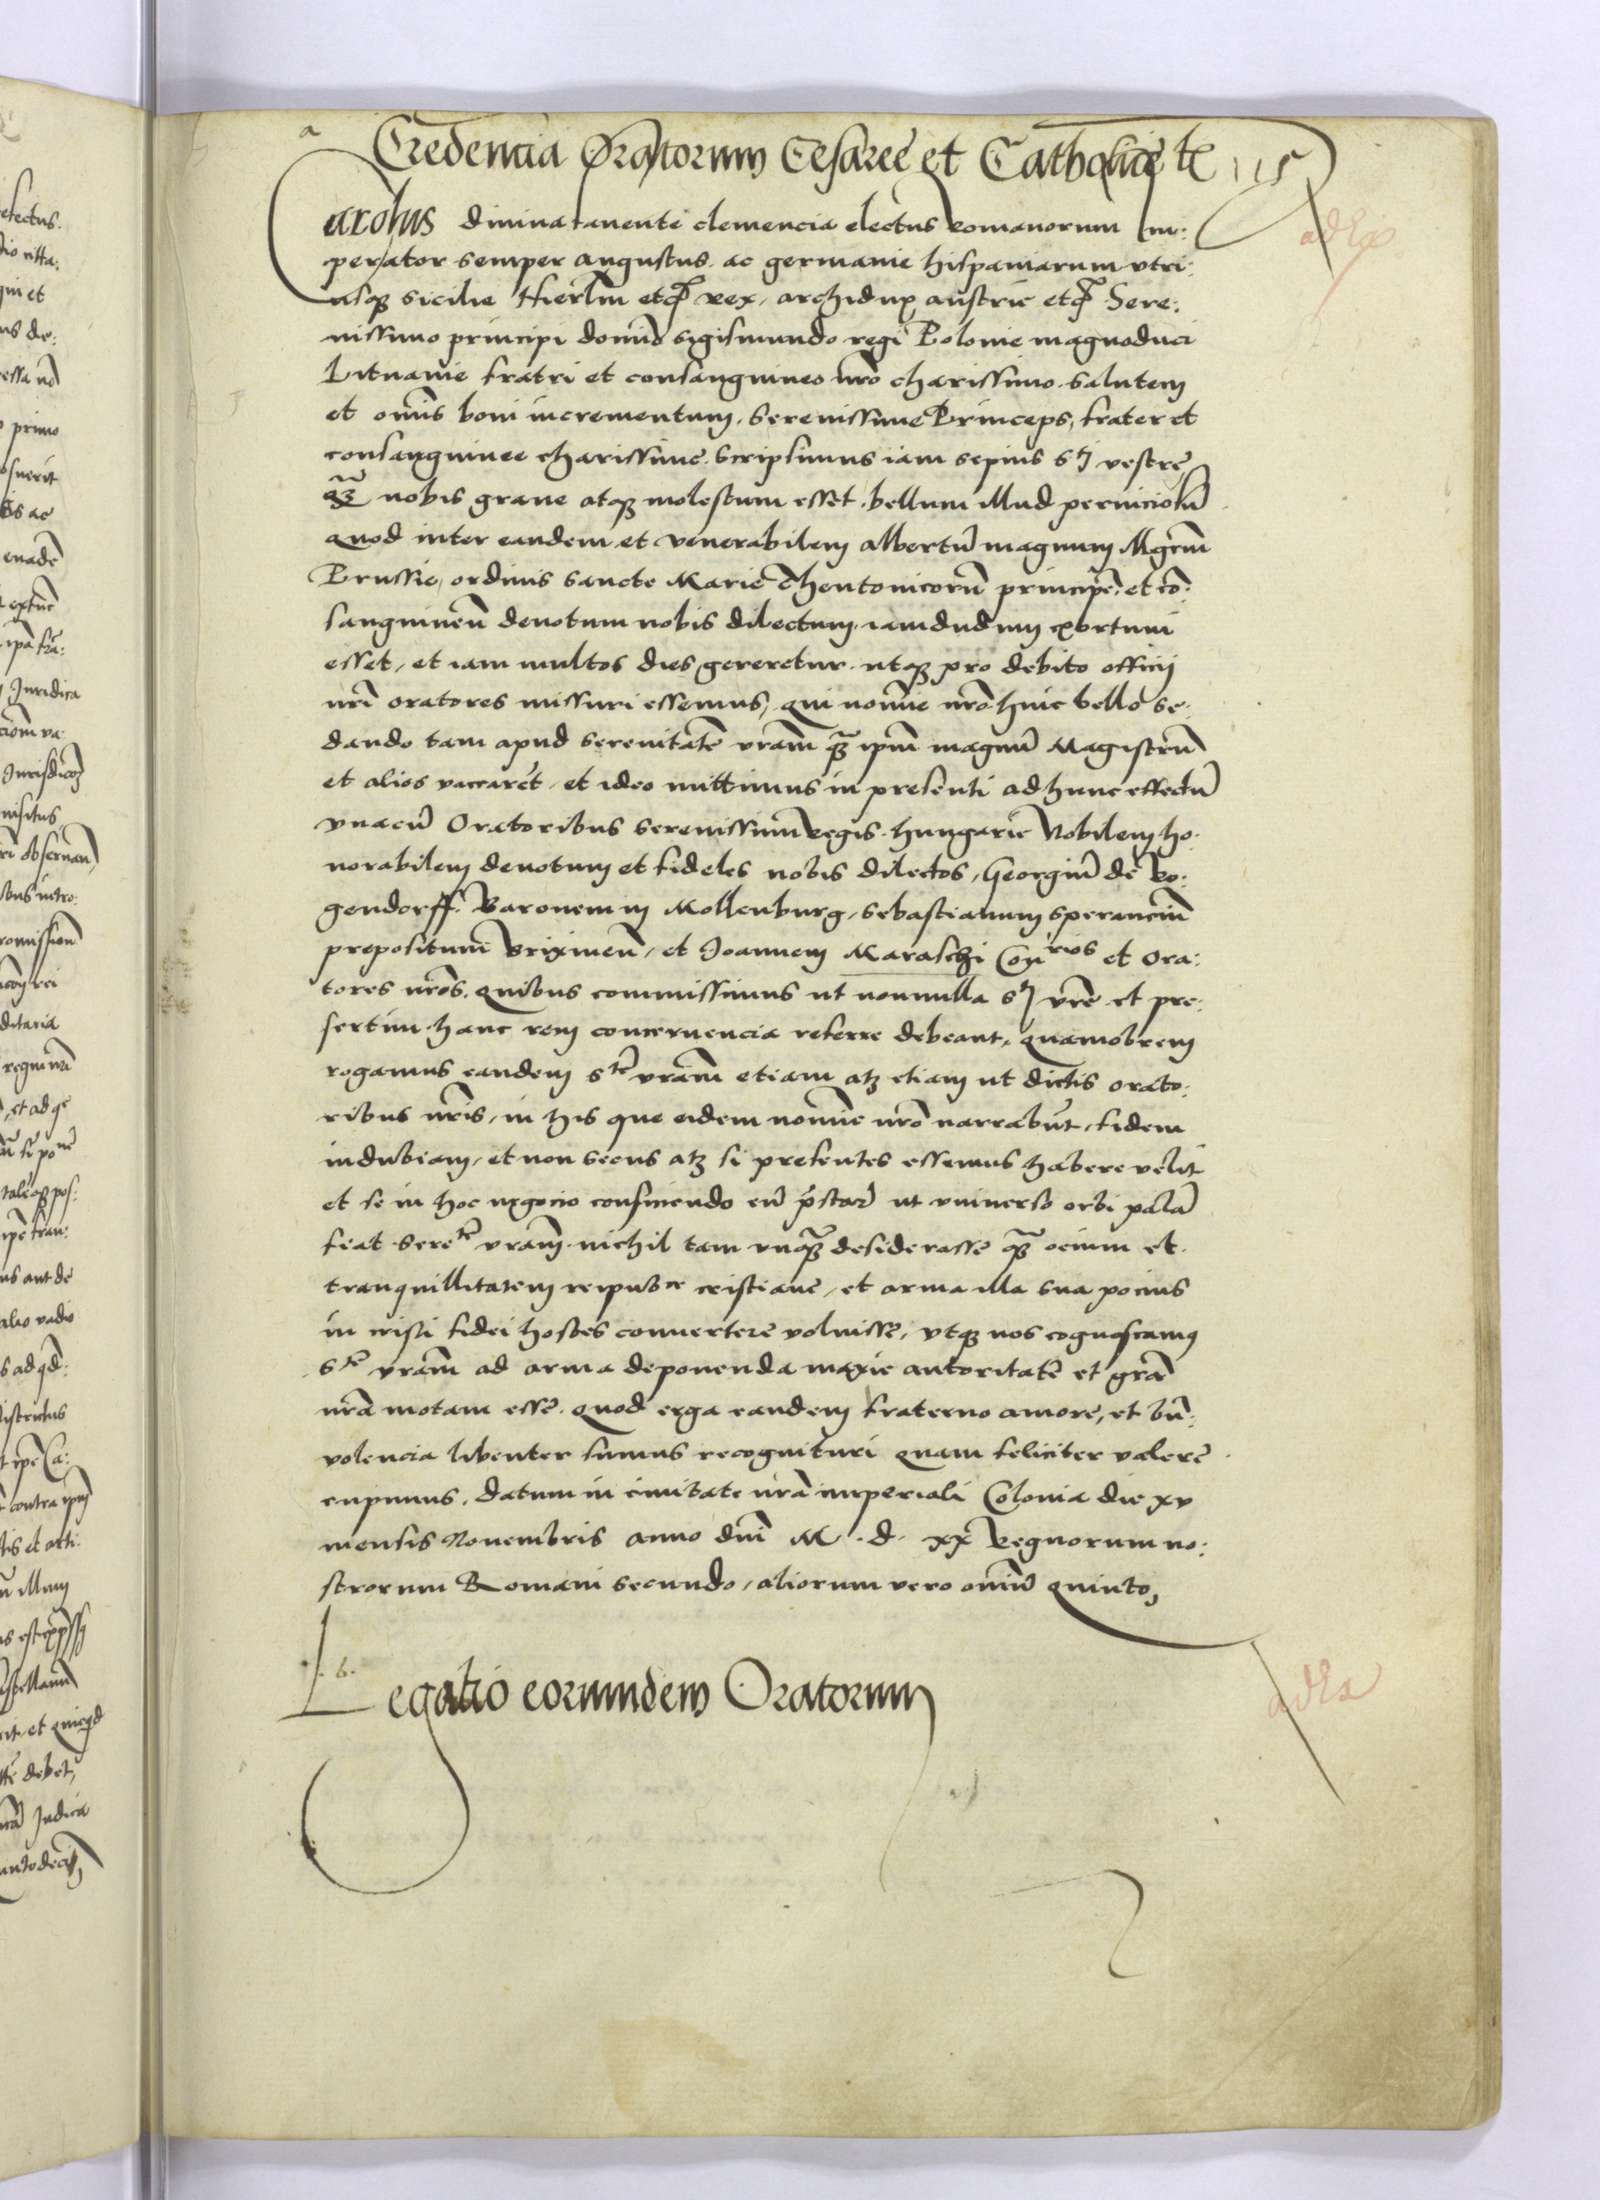 a
Credencia Oratorum Cesaree et Catholice te 115
Carolus divina favente clemencia electus Romanorum Im:
perator semper augustus ac germanie hispaniarum utri:
usq3 sicilie Hierlm̄ etc̄ rex, archidux austrie etc̄ Sere:
nissimo principi domīo sigismundo regi Polonie magnoduci
Lituanie fratri et consanguineo nr̄o charissimo salutem
et omīs boni incrementum, serenissime Princeps, frater et
consanguinee charissime scripsimus iam sepius Stj vestre
q̄3 nobis grave atq3 molestum esset bellum illud perniciosū
quod inter eandem et venerabilem albertū magnum Mgrūm
Prussie, ordinis sancte Marie Theutonicorū principē et cō:
sanguineū devotum nobis dilectum, iamdudum exortum
esset, et iam multos dies gereretur utq3 pro debito officij
nr̄i oratores missuri essemus, qui noīe nr̄o huic bello se:
dando tam apud serenitatē vr̄am q̄3 ipm̄ magnū Magistrū
et alios vaccarēt, et ideo mittimus in presenti ad hunc effectū
vnacū Oratoribus serenissimi regis hungarie Nobilem ho:
norabilem devotum et fideles nobis dilectos, Georgiū de Ro:
gendorff Baronem in Mollenburg, sebastianum sperancium
prepositum Brixineñ, et Joannem Maraschi Conrios et Ora:
tores nr̄os, quibus commissimus ut nonnulla Stj vr̄e et pre:
sertim hanc rem concernencia referre debeant, quamobrem
rogamus eandem Stē vr̄am etiam at3 etiam ut dictis orato:
ribus nr̄is, in his que eidem noīe nr̄o narrabūt, fidem
indubiam, et non secus at3 si presentes essemus habere velit
et se in hoc negocio conficiendo eū p̄starē ut universo orbi palā
fiat Serete vr̄am nichil tam unq̄3 desiderasse q̄3 ocium et
tranquillitatem reipubce cristiane, et arma illa sua pocius
in cristi fidei hostes convertere voluisse, utq3 nos cognoscamus
Stē vr̄am ad arma deponenda maxīe autoritatē et gr̄a
nr̄a motam esse, quod erga eandem fraterno amore, et bn̄:
volencia libenter sumus recognituri quam feliciter valere
cupimus, datum in civitate nr̄a imperiali Colonia die xv
mensis Novembris anno dn̄i M . d . xx Regnorum no:
strorum Romani secundo, aliorum vero omīū quinto,
b.
Legatio eorumdem Oratorum